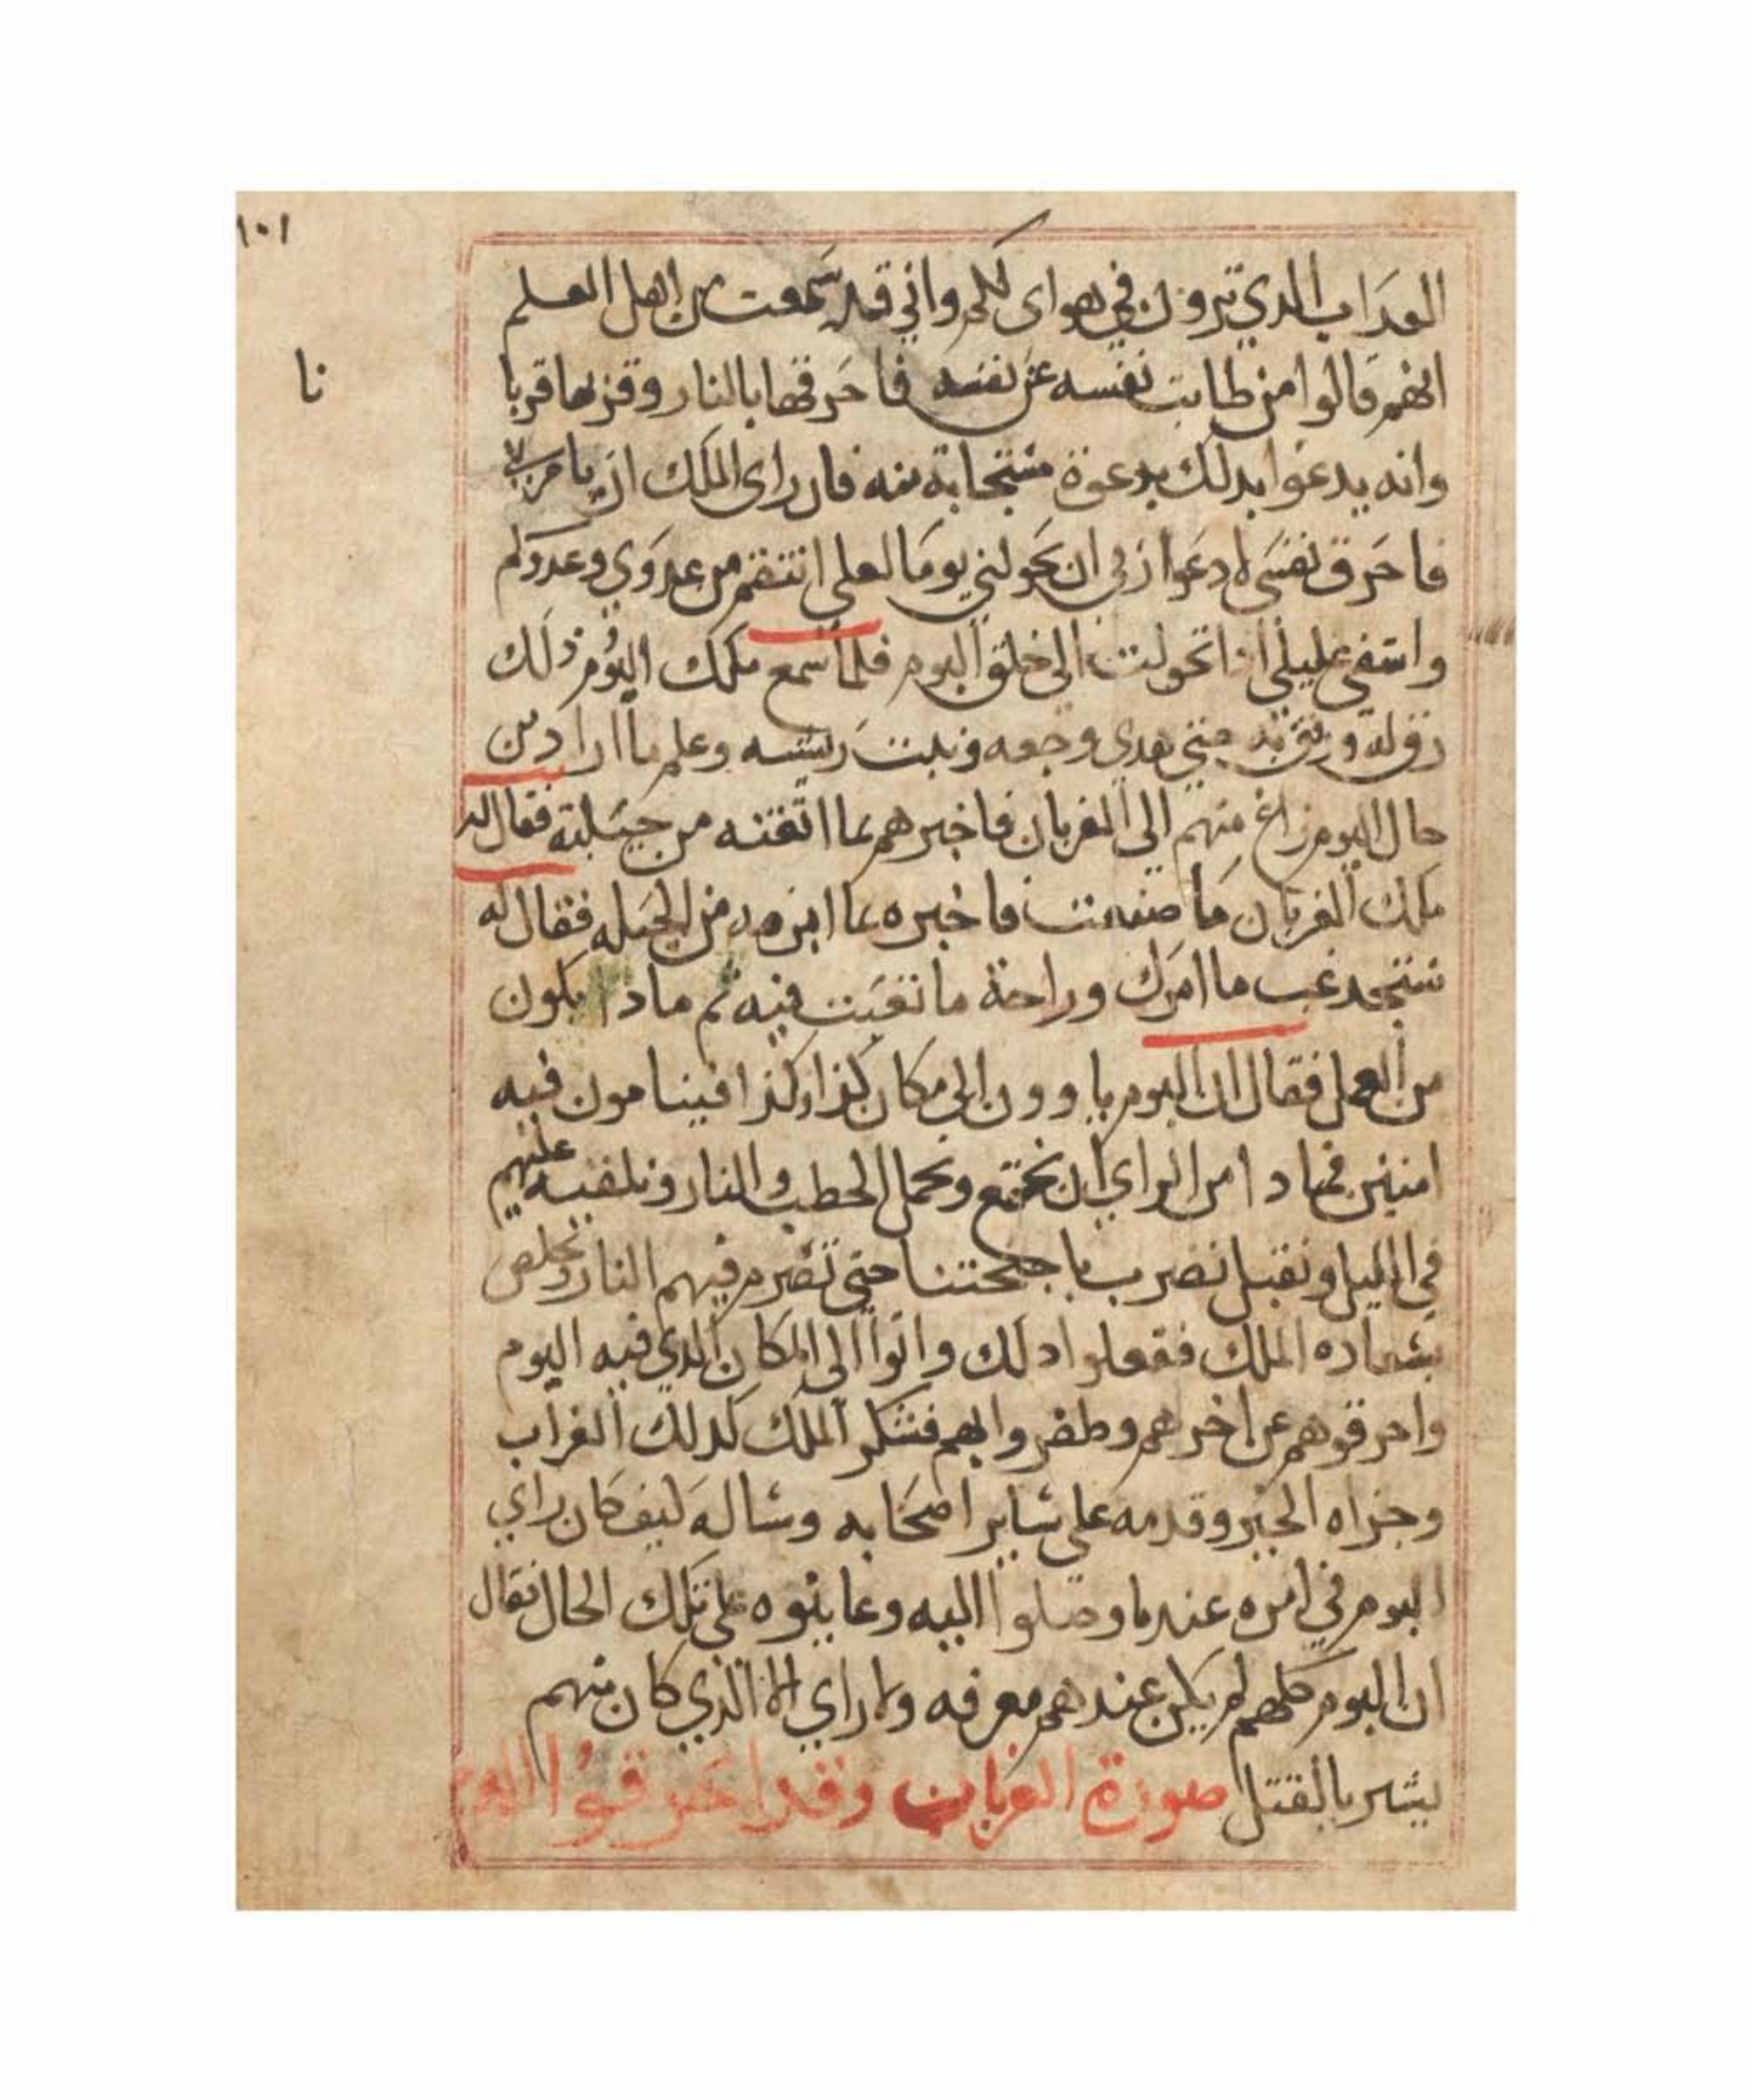 ١٠١
العداب الدي ترون في هواي لكم واني قد سمعت من اهل العلم
نا
انهم قالوا من طابت نفسه عن نفسه فاحرقها بالنار وقربها قربا
وانه يدعوا بدلك بدعوة مستجابة منه فان راى الملك ان يامر بي
فاحرق نفسي ادعوا ربي ان يحولني يوما لعلي انتقم من عدوي وعدوكم
واشفي غليلي ادا تحولت الى خلق البوم فلما سمع ملك البوم ذلك
رق له ورفق به حتى هدي وجعه ونبت ريشه وعلم ما اراد من
حال البوم زاغ منهم الى الغربان فاخبرهم بما اتقنه من حيلته فقال له
ملك الغربان ما صنعت فاخبره بما ابرمه من الحيله فقال له
ستجد غب ما امرك وراحة ما تعبت فيه ثم مادا يكون
من العمل فقال ان البوم ياوون الى مكان كذا وكذا فينامون فيه
امنين فما دا من الراي ان نجتمع ونحمل الحطب والنار ونلقيه عليهم
في الليل ونقبل نضرب باجنحتنا حتى تضرم فيهم النار ونخلص
بسعادة الملك ففعلوا دلك واتوا الى المكان الدي فيه البوم
واحرقوهم عن اخرهم وظفروا بهم فشكر الملك لدلك الغراب
وجزاه الخير وقدمه على ساير اصحابه وساله كيف كان راي
البوم في امره عندما وصلوا اليه وعاينوه على تلك الحال فقال
ان البوم كلهم لم يكن عندهم معرفه ولا راي الا الذي كان منهم
يشير بالقتل صورة الغربان وقد احرقوا البوم